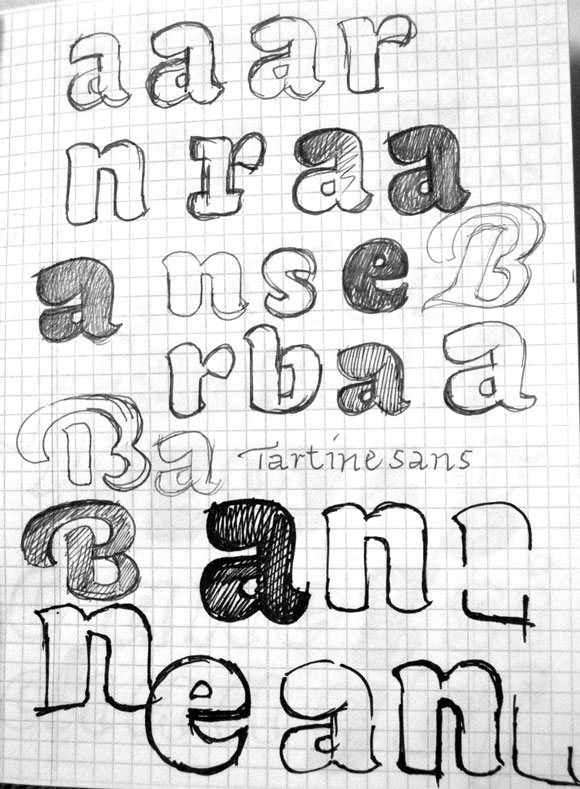 a a a r
n r a a
a n s e B
r b a a
B a Tartine sans
B a n
n e a n